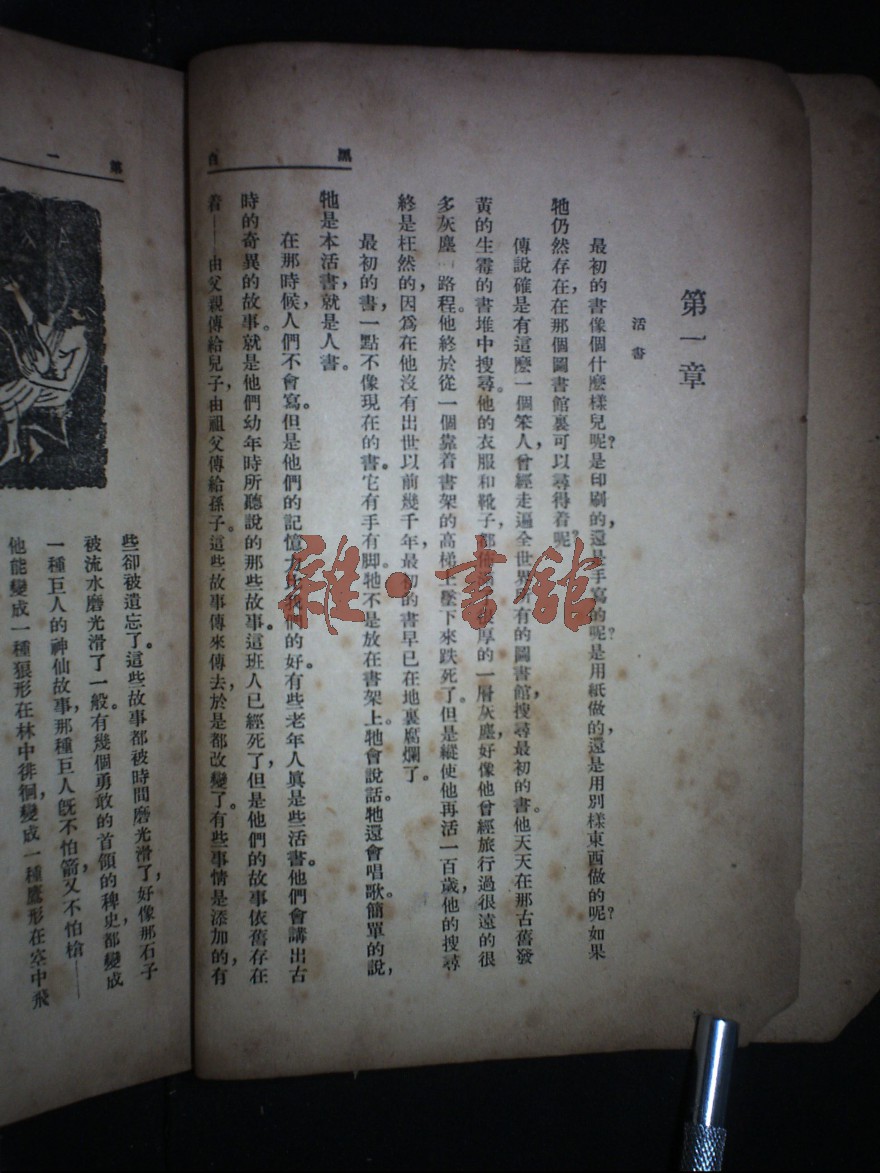 黑白
第一章
活書
最初的書像個什麼樣兒呢?是印刷的,還是手寫的呢?是用紙做的,還是用別樣東西做的呢?如果
牠仍然存在,在那個圖書館裏可以尋得着呢?
傳說確是有這麼一個笨人,曾經走遍全世界所有的圖書館,搜尋最初的書。他天天在那古舊發
黃的生霉的書堆中搜尋。他的衣服和靴子,都
厚的一層灰塵,好像他曾經旅行過很遠的很
多灰塵
路程。他終於從一個靠着書架的高梯上墜下來跌死了。但是縱使他再活一百歲,他的搜尋
終是枉然的,因爲在他沒有出世以前幾千年,最初的書早已在地裏腐爛了。
最初的書,一點不像現在的書。它有手有脚。牠不是放在書架上。牠會說話。牠還會唱歌。簡單的說,
牠是本活書,就是人書。
在那時候,人們不會寫。但是他們的記憶力比我們的好。有些老年人眞是些活書。他們會講出古
時的奇異的故事。就是他們幼年時所聽說的那些故事。這班人已經死了,但是他們的故事依舊存在
着——由父親傳給兒子,由祖父傳給孫子。這些故事傳來傳去,於是都改變了。有些事情是添加的,有
雜·書舘
第一
些卻被遺忘了。這些故事都被時間磨光滑了,好像那石子
被流水磨光滑了一般。有幾個勇敢的首領的稗史,都變成
一種巨人的神仙故事,那種巨人旣不怕箭,又不怕槍——
他能變成一種狼形在林中徘徊,變成一種鷹形在空中飛